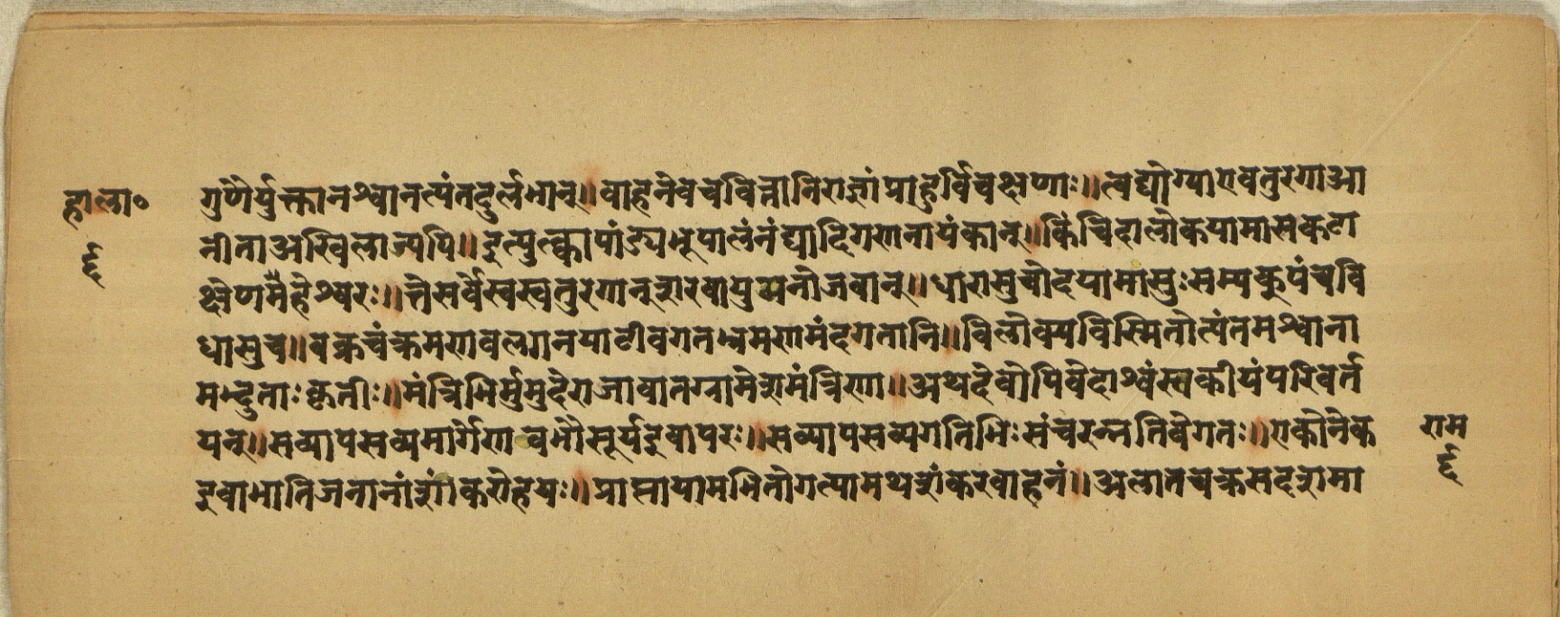 हाला॰
गुणैर्युक्तानश्वानत्यंतदुर्लभान्॥वाहनेवचवित्तानिराज्ञांप्राहुर्विचक्षणाः॥त्वद्योग्याएवतुरगाआ
६
नीताअखिलाअपि॥इत्युत्क्वापांड्यभूपालंनंद्यादिगणनायकान्॥किंचिदालोकयामासकटा
क्षेणमहेश्वरः॥तेसर्वेस्वस्वतुरगान्शरवायुमनोजवान्॥धारासुचोदयामासुःसम्यक्पंचवि
धासुच॥वक्रचंक्रमणवल्गनयाटीवगतभ्रमणमंदगतानि॥विलोक्यविस्मितोत्यंतमश्वाना
मद्भुताःकृतीः॥मंत्रिभिर्मुमुदेराजावातग्रामेशमंत्रिणा॥अथदेवोपिवेदाश्वंस्वकीयंपरिवर्त
यन्॥सव्यापसव्यमार्गेणबभौसूर्यइवापरः॥सव्यापसव्यगतिभिःसंचरन्नतिवेगतः॥एकोनेक
राम
६
इवाभातिजनानांशांकरोहयः॥प्रासायाममभितोगत्यामथशंकरवाहनं॥अलातचक्रसदशमा